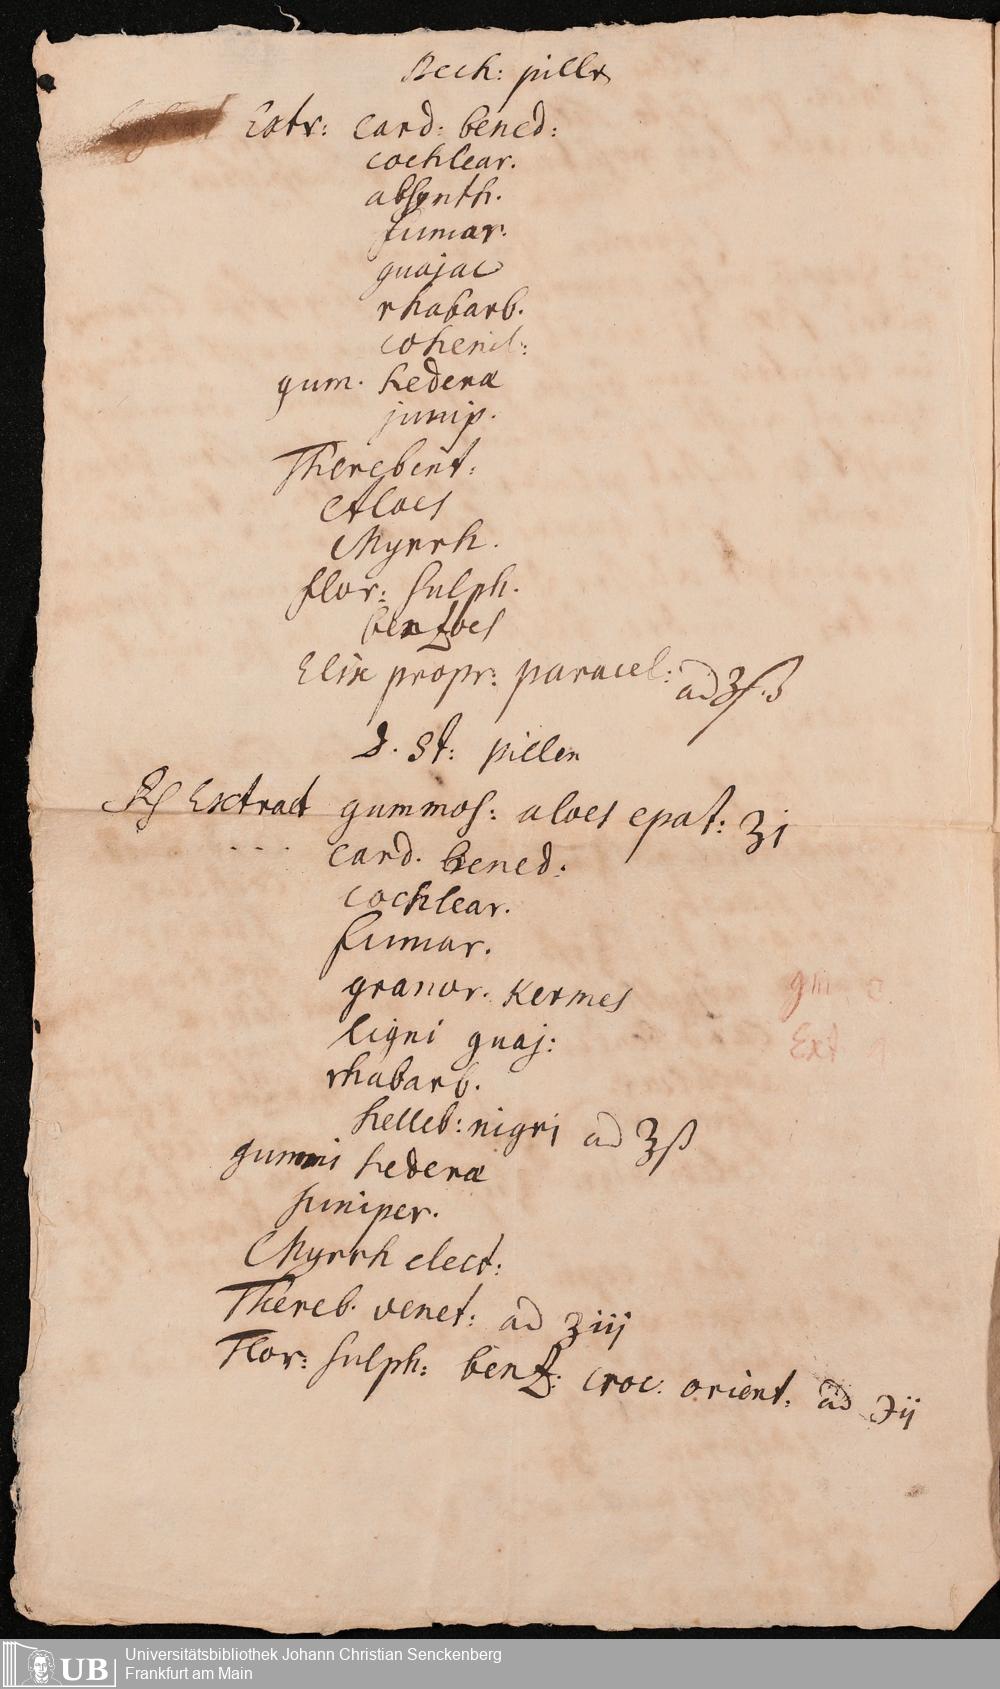 Bech: pillẽ
Extr: card: bened:
cochlear.
absynth.
fumar.
guajac
rhabarb.
gum. hederæ
junip.
Therebint:
Aloes
Myrrh.
flor: sulph.
benzoes
Elix propr: paracel: ad ʒſ.
D. St: pillen
Rx Extract gummos: aloes epat: ʒi
card. bened:
cochlear.
fumar.
granor. Kermes
ligni guaj:
rhabarb.
helleb: nigri ad ʒß
gummi hederæ
Juniper.
Myrrh elect:
Thereb. venet: ad ʒiij
Flor: sulph: benz: croc. orient. ad ℈ij
Ext
UB
Universitätsbibliothek Johann Christian Senckenberg
Frankfurt am Main